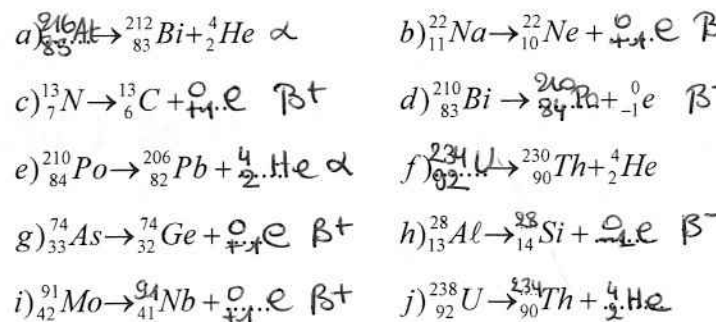 a) ²¹⁶₈₅At → ²¹²₈₃Bi + ⁴₂He α b) ²²₁₁Na → ²²₁₀Ne + ⁰₊₁e β
c) ¹³₇N → ¹³₆C + ⁰₊₁e β+ d) ²¹⁰₈₃Bi → ²¹⁰₈₄Po + ⁰₋₁e β-
e) ²¹⁰₈₄Po → ²⁰⁶₈₂Pb + ⁴₂He α f) ²³⁴₉₂U → ²³⁰₉₀Th + ⁴₂He
g) ⁷⁴₃₃As → ⁷⁴₃₂Ge + ⁰₊₁e β+ h) ²⁸₁₃Al → ²⁸₁₄Si + ⁰₋₁e β-
i) ⁹¹₄₂Mo → ⁹¹₄₁Nb + ⁰₊₁e β+ j) ²³⁸₉₂U → ²³⁴₉₀Th + ⁴₂He